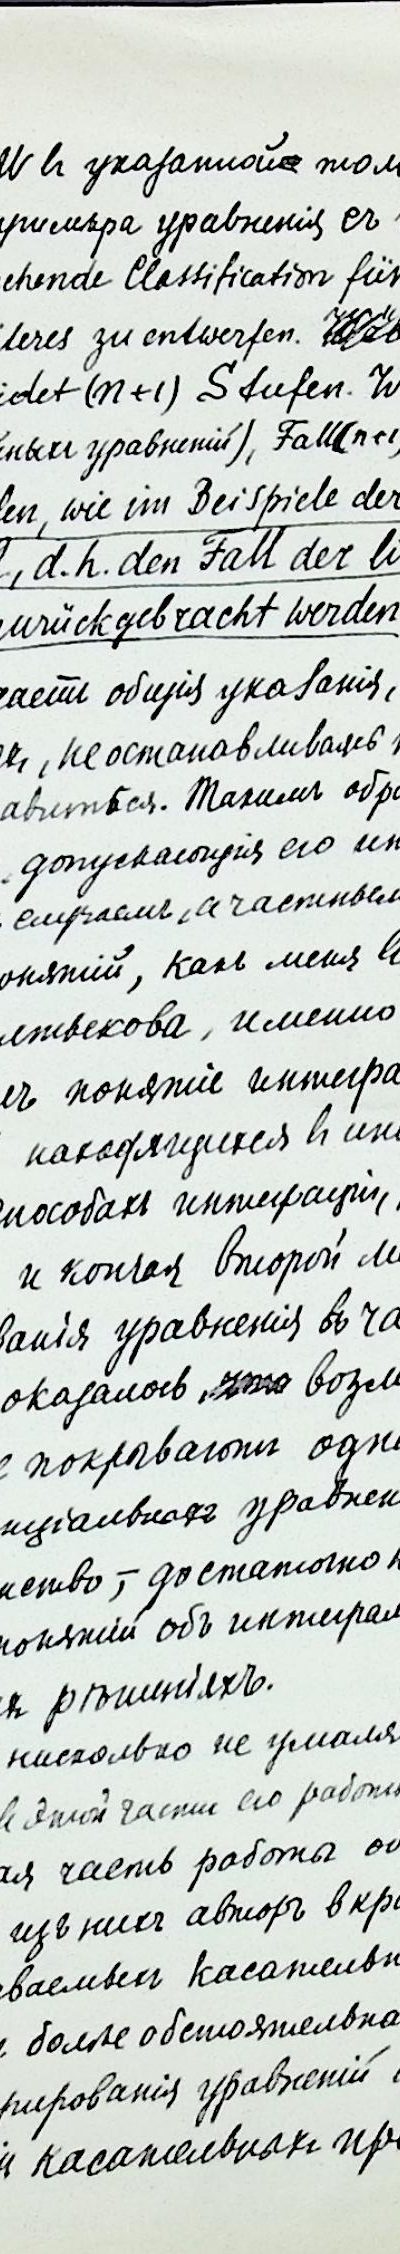 въ указанной
примѣра уравненія съ
chende Classification für
teres zu entwerfen.
idet (n+1) Stufen. W
ныхъ уравненій), Fall (n+1)
len, wie im Beispiele der
l, d.h. den Fall der li
zurückgebracht werden
чаетъ общія указанія,
, не останавливаясь
авиться. Такимъ обра
допускающія его ин
случаемъ, а частным
онятій, какъ меня
лтыкова, именно
понятіе интегра
находящихся въ ин
способахъ интеграціи,
и кончая второй м
ванія уравненія въ ча
оказалось возм
е покрываютъ одн
нціальныхъ уравнен
нство, – достаточно
понятій объ интеграл
хъ рѣшеніяхъ.
нисколько не умаля
въ этой части его работы
ая часть работы
изъ нихъ авторъ въ кр
ваемыхъ касательн
болѣе обстоятельна
грированія уравненій
й касательныхъ пре